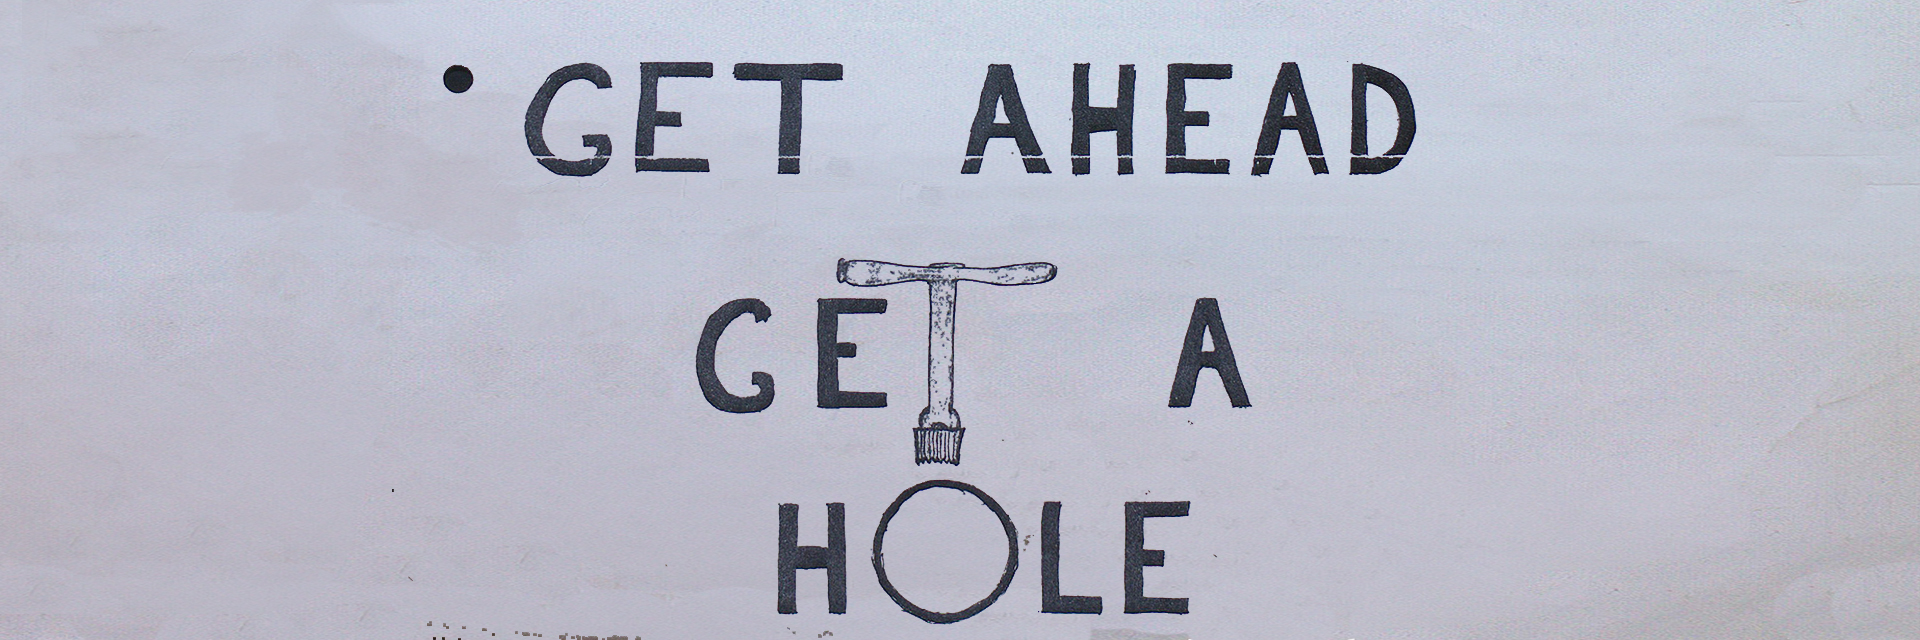 • GET AHEAD
GET A
HOLE